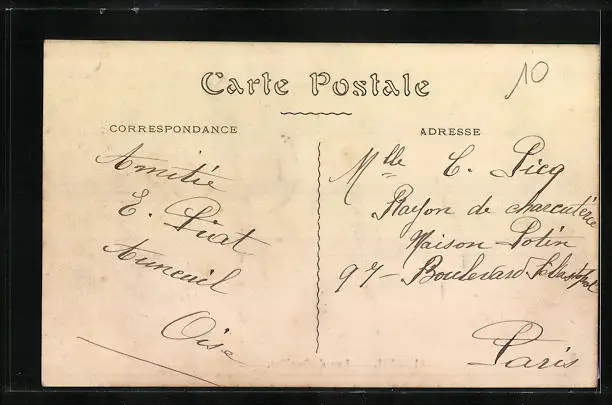 Carte Postale
10
CORRESPONDANCE
Amitié
E. Piat
Auneuil
Oise
ADRESSE
Mlle C. Picq
Rayon de charcuterie
Maison Potin
97 - Boulevard Sébastopol
Paris